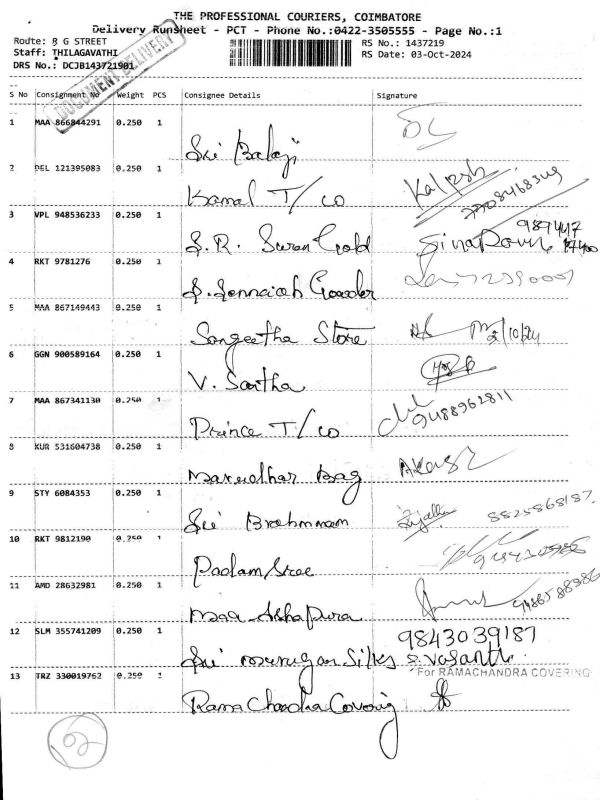 THE PROFESSIONAL COURIERS, COIMBATORE
Delivery Runsheet - PCT - Phone No.:0422-3505555 - Page No.:1
Route: R G STREET
RS No.: 1437219
Staff: THILAGAVATHI
RS Date: 03-Oct-2024
DRS No.: DCJB143721901
DOCUMENT DELIVERY
S No Consignment No Weight PCS Consignee Details Signature
1 MAA 866844291 0.250 1
Sri Balaji
2 DEL 121395083 0.250 1
Kamal T/co Kalpesh
3 VPL 948536233 0.250 1
S.R. Swan Gold
4 RKT 9781276 0.250 1
Gounder
5 MAA 867149443 0.250 1
Sangeetha Store
6 GGN 900589164 0.250 1
V. Saritha
7 MAA 867341130 0.250 1
Prince T/co 9488962811
8 KUR 531604738 0.250 1
Marudhar Bag
9 STY 6084353 0.250 1
Sri Brahmmam 8825868187
10 RKT 9812190 0.250 1
11 AMD 28632981 0.250 1
Maa Ashapura
12 SLM 355741209 0.250 1 9843039187
Sri murugan Silks S. Vasanth
13 TRZ 330019762 0.250 1 For RAMACHANDRA COVERING
Rama Chandra Covering
62